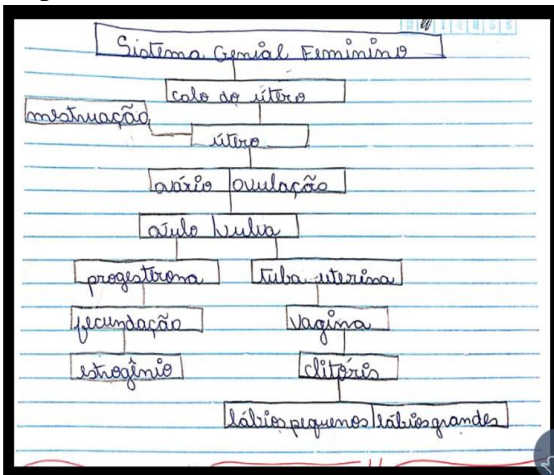 Sistema Genial Feminino
colo do útero
mestruação
útero
ovário ovulação
óvulo vulva
progesterona tuba uterina
fecundação vagina
estrogênio clitóris
lábios pequenos lábios grandes